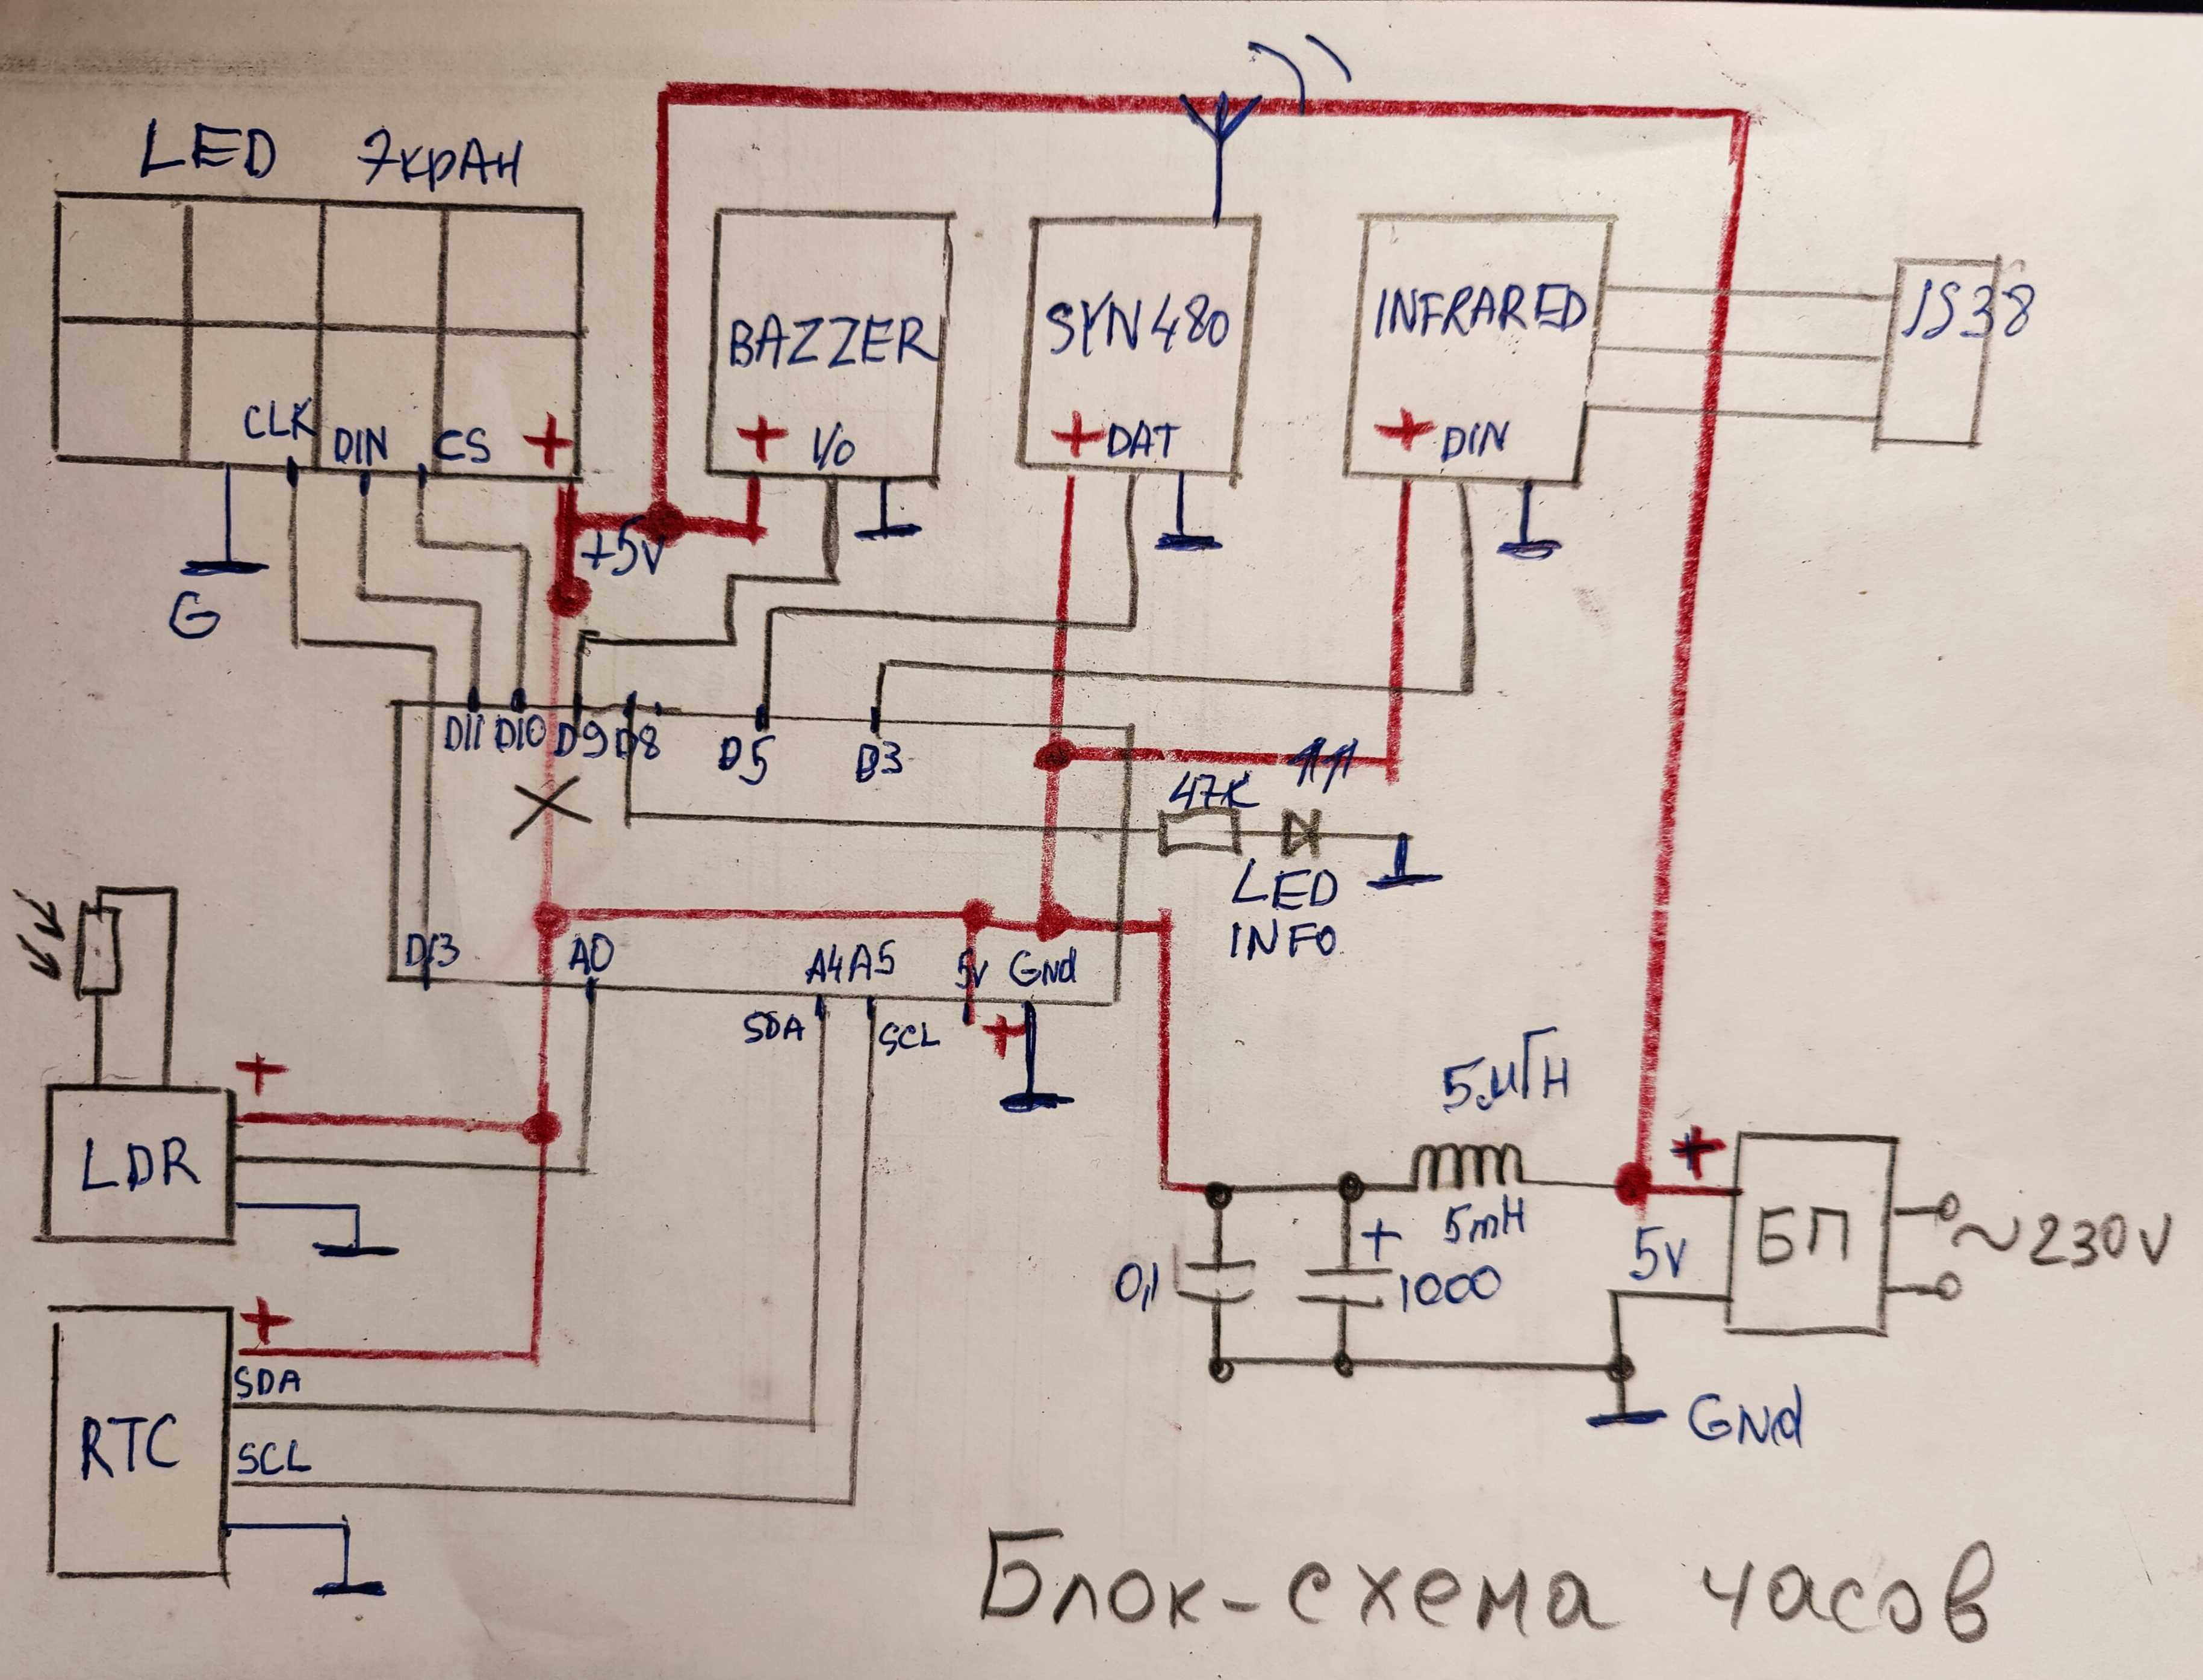 LED ЭкрАН
CLK DIN CS +
G
+5v
BAZZER
+ I/O
SYN480
+ DAT
INFRARED
+ DIN
JS38
D11 D10 D9 D8 D5 D3
47K
LED
INFO
D13 A0 A4 A5 5v Gnd
SDA SCL +
+
LDR
+
SDA
SCL
RTC
5мГН
5mH
0,1
+
1000
+
5v
БП
~230V
GNd
Блок-схема часов